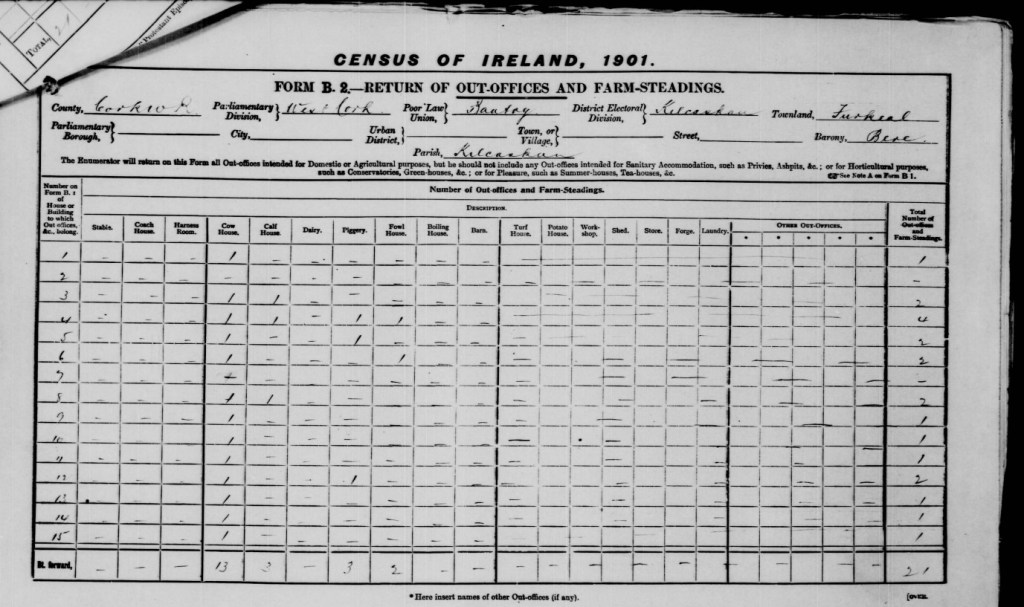 TOTAL, 21
CENSUS OF IRELAND, 1901.
FORM B. 2.—RETURN OF OUT-OFFICES AND FARM-STEADINGS.
County, Cork W R Parliamentary Division, West Cork Poor Law Union, Bantry District Electoral Division, Kilcaskan Townland, Furkeal
Parliamentary Borough, City, Urban District, Town, or Village, Street, Barony, Bere
Parish, Kilcaskan
The Enumerator will return on this Form all Out-offices intended for Domestic or Agricultural purposes, but he should not include any Out-offices intended for Sanitary Accommodation, such as Privies, Ashpits, &c.; or for Horticultural purposes,
such as Conservatories, Green-houses, &c.; or for Pleasure, such as Summer-houses, Tea-houses, &c. See Note A on Form B 1.
Number on Form B. 1 of House or Building to which Out offices, &c., belong.
Number of Out-offices and Farm-Steadings.
DESCRIPTION.
Stable. Coach House. Harness Room. Cow House. Calf House. Dairy. Piggery. Fowl House. Boiling House. Barn. Turf House. Potato House. Work-shop. Shed. Store. Forge. Laundry. OTHER OUT-OFFICES. Total Number of Out-offices and Farm-Steadings.
* * * * *
1 – – – 1 – – – – – – – – – – – – – – – – – – 1
2 – – – – – – – – – – – – – – – – – – – – – – –
3 – – – 1 1 – – – – – – – – – – – – – – – – – 2
4 – – – 1 1 – 1 1 – – – – – – – – – – – – – – 4
5 – – – 1 – – 1 – – – – – – – – – – – – – – – 2
6 – – – 1 – – – 1 – – – – – – – – – – – – – – 2
7 – – – – – – – – – – – – – – – – – – – – – – –
8 – – – 1 1 – – – – – – – – – – – – – – – – – 2
9 – – – 1 – – – – – – – – – – – – – – – – – – 1
10 – – – 1 – – – – – – – – – – – – – – – – – – 1
11 – – – 1 – – – – – – – – – – – – – – – – – – 1
12 – – – 1 – – 1 – – – – – – – – – – – – – – – 2
13 – – – 1 – – – – – – – – – – – – – – – – – – 1
14 – – – 1 – – – – – – – – – – – – – – – – – – 1
15 – – – 1 – – – – – – – – – – – – – – – – – – 1
Bt. forward, – – – 13 3 – 3 2 – – – – – – – – – – – – – – 21
* Here insert names of other Out-offices (if any).
[OVER.